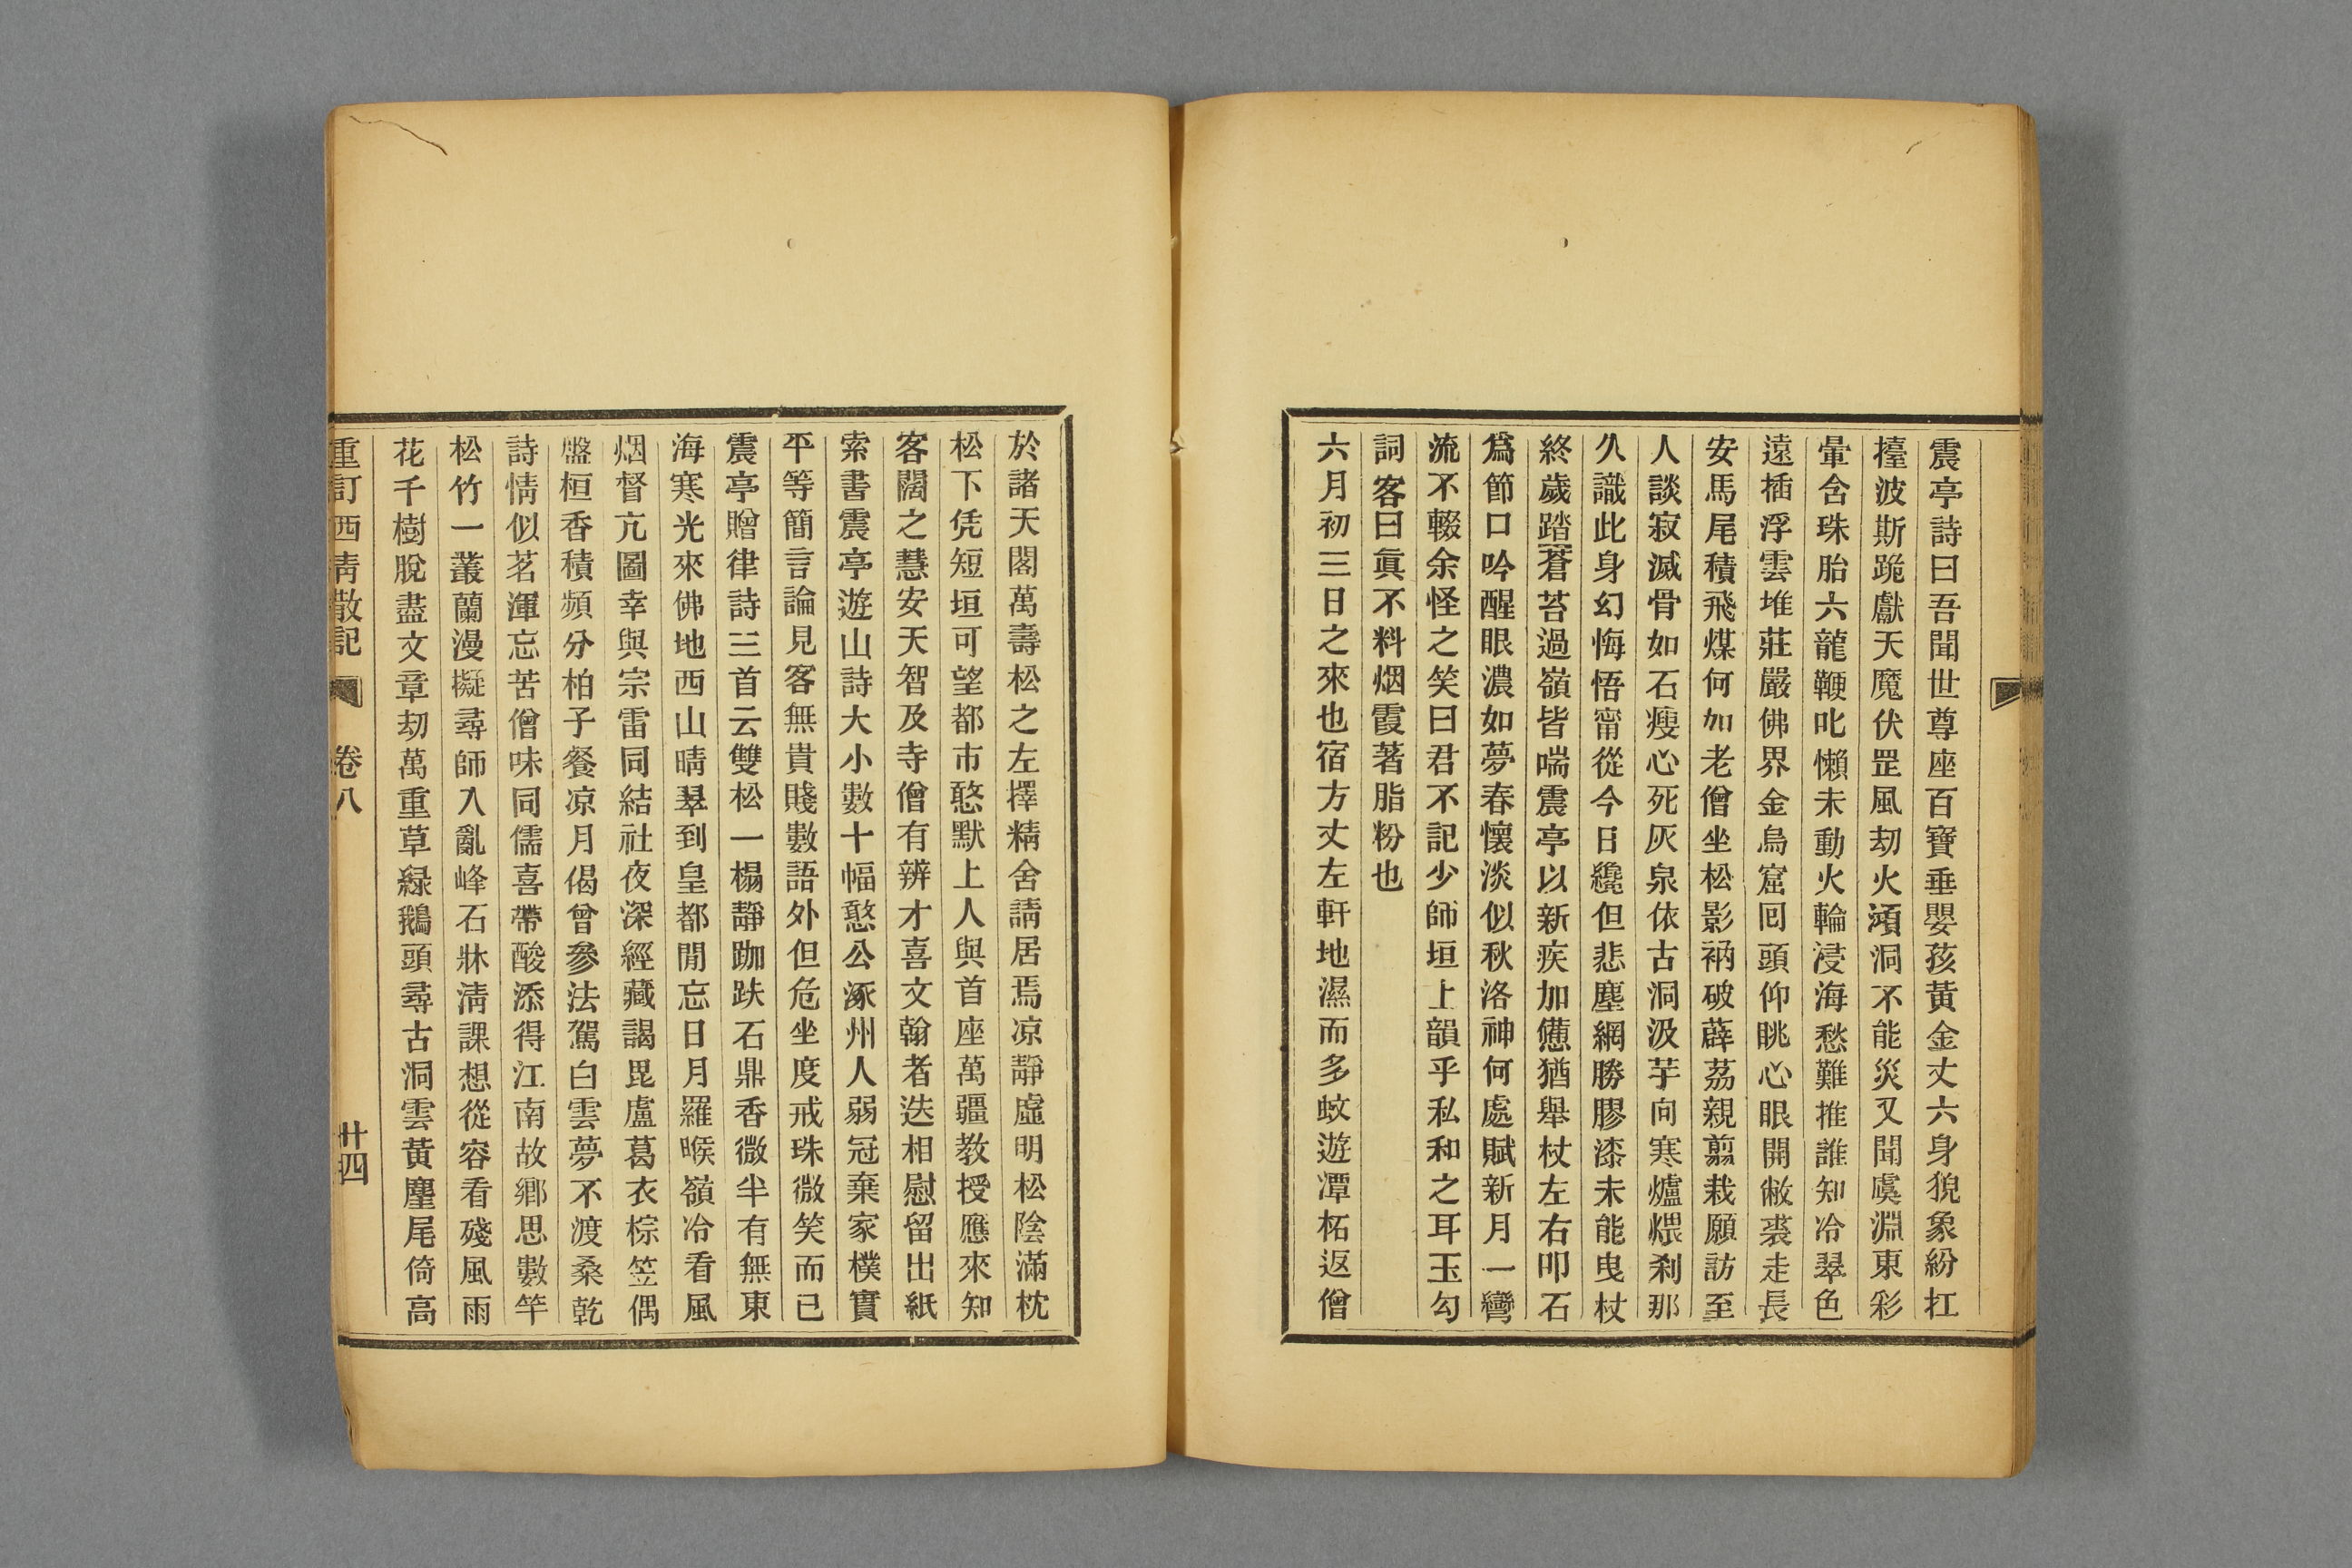 震亭詩曰吾聞世尊座百寶垂嬰孩黃金丈六身貌象紛扛
擡波斯跪獻天魔伏罡風刧火澒洞不能災又聞虞淵東彩
暈含珠胎六龍鞭叱懶未動火輪浸海愁難推誰知冷翠色
遠插浮雲堆莊嚴佛界金烏窟囘頭仰眺心眼開敝裘走長
安馬尾積飛煤何如老僧坐松影衲破薜荔親翦裁願訪至
人談寂滅骨如石瘦心死灰泉依古洞汲芋向寒爐煨刹那
久識此身幻悔悟甯從今日纔但悲塵網勝膠漆未能曳杖
終歲踏蒼苔過嶺皆喘震亭以新疾加憊猶舉杖左右叩石
爲節口吟醒眼濃如夢春懷淡似秋洛神何處賦新月一彎
流不輟余怪之笑曰君不記少師垣上韻乎私和之耳玉勾
詞客曰眞不料烟霞著脂粉也
六月初三日之來也宿方丈左軒地濕而多蚊遊潭柘返僧
於諸天閣萬壽松之左擇精舍請居焉凉靜虛明松陰滿枕
松下凭短垣可望都市憨默上人與首座萬疆教授應來知
客闊之慧安天智及寺僧有辨才喜文翰者迭相慰留出紙
索書震亭遊山詩大小數十幅憨公涿州人弱冠棄家樸實
平等簡言論見客無貴賤數語外但危坐度戒珠微笑而已
震亭贈律詩三首云雙松一榻靜跏趺石鼎香微半有無東
海寒光來佛地西山晴翠到皇都閒忘日月羅睺嶺冷看風
烟督亢圖幸與宗雷同結社夜深經藏謁毘盧葛衣棕笠偶
盤桓香積頻分柏子餐凉月偈曾參法駕白雲夢不渡桑乾
詩情似茗渾忘苦僧味同儒喜帶酸添得江南故鄕思數竿
松竹一叢蘭漫擬尋師入亂峰石牀淸課想從容看殘風雨
花千樹脫盡文章刧萬重草綠鵝頭尋古洞雲黃麈尾倚高
重訂西靑散記 卷八 廿四